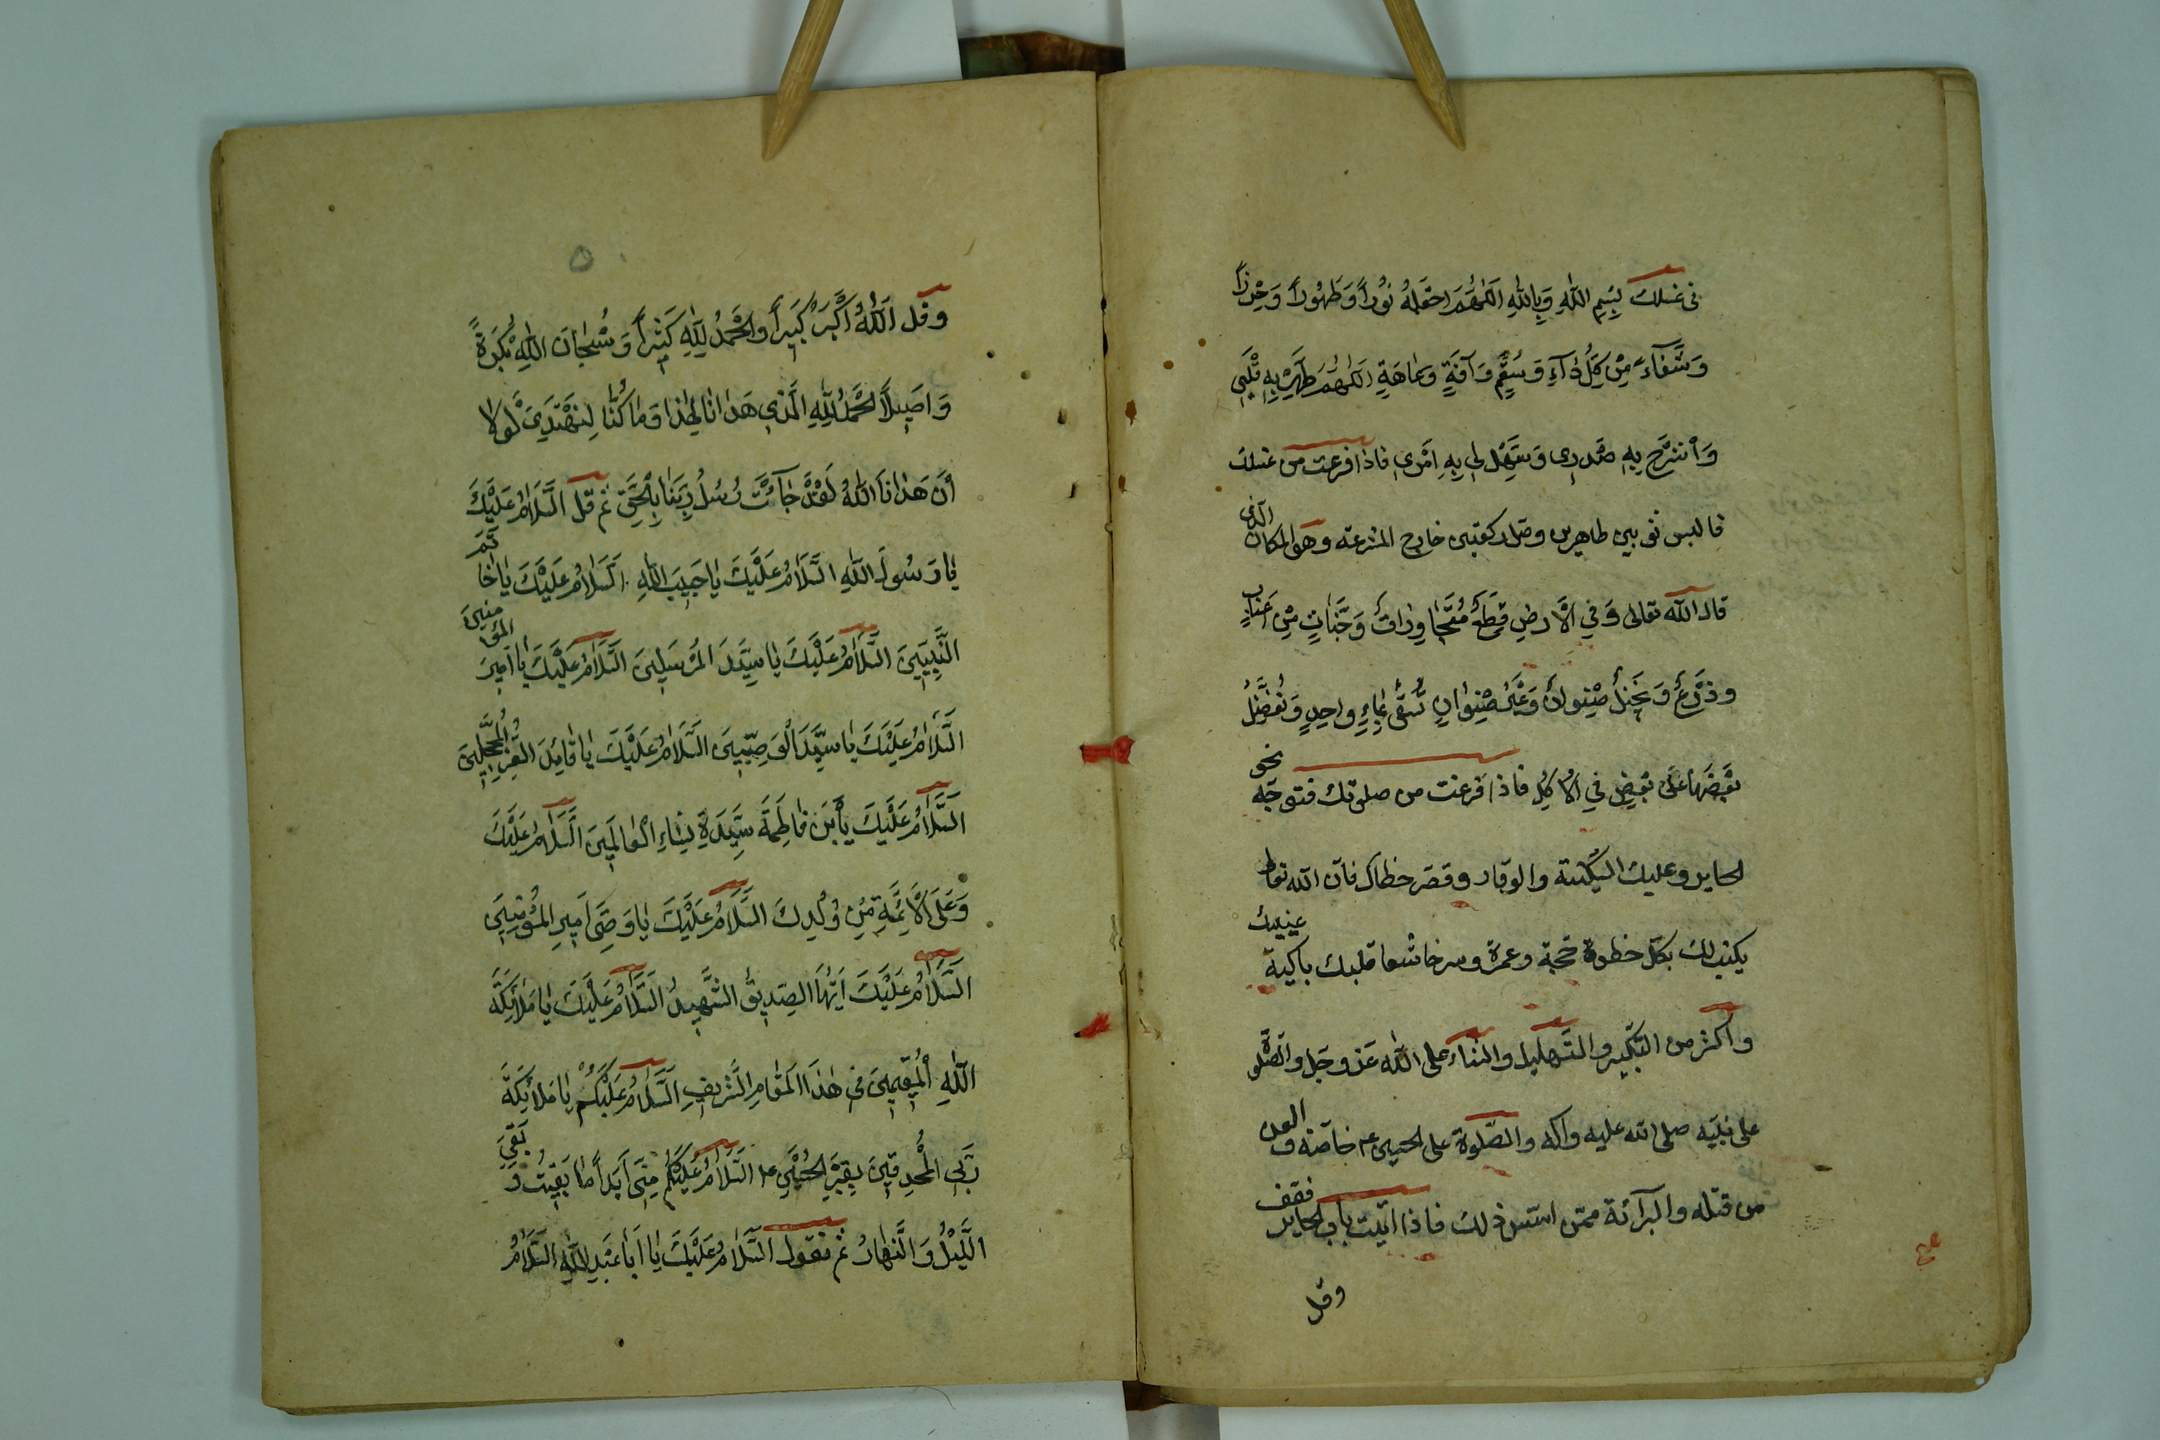 فی غسلك بِسْمِ اللّٰهِ وَبِاللّٰهِ اَللّٰهُمَّ اجْعَلْهُ نُوْراً وَطَهُوْراً وَحِرْزاً
وَشَفٰآءً مِنْ كُلِّ دٰآءٍ وَسُقْمٍ وَآفَةٍ وَعاهَةٍ اَللّٰهُمَّ طَهِّرْ بِهِ قَلْبي
وَاشْرَحْ بِهِ صَدْرِی وَسَهِّلْ لِي بِهِ اَمْرِي فاذا فرغت من غسلك
فالبس ثوبين طاهرين وصل ركعتين خارج المشرعة وهو المكان الذی
قال الله تعالى وَفِي الْأَرْضِ قِطَعٌ مُتَجٰاوِرٰاتٌ وَجَنّٰاتٍ مِنْ اَعْنٰابٍ
وَزَرْعٌ وَنَخِيلٌ صِنْوٰانٌ وَغَيْرُ صِنْوٰانٍ تُسْقٰى بِمٰاءٍ وٰاحِدٍ وَنُفَضِّلُ
بَعْضَهٰا عَلىٰ بَعْضٍ فِي الْاُكُلِ فاذا فرغت من صلوتك فتوجّه نحو
الحاير وعليك السّكينة والوقار وقصّر خطاك فانّ الله تعالى
يكتب لك بكلّ خطوة حجّة وعمرة وسر خاشعا قلبك باكية عينيك
واكثر من التّكبير والتّهليل والثناء على اللّٰه عزّ وجلّ والصّلوة
على نبيّه صلى الله عليه وآله والصّلوة على الحسين ع خاصّة والعن
من قتله والبرآئة ممّن اسّس ذلك فاذا اتيت باب الحاير فقف
وقل
۵
وقل اَللّٰهُ اَكْبَرُ كَبيراً وَالْحَمْدُ لِلّٰهِ كَثيراً وَسُبْحٰانَ اللّٰهِ بُكْرَةً
وَاَصيلاً اَلْحَمْدُ لِلّٰهِ الَّذي هَدٰانٰا لِهٰذٰا وَمٰا كُنّٰا لِنَهْتَدِيَ لَوْلاٰ
اَنْ هَدٰانَا اللّٰهُ لَقَدْ جٰآءَتْ رُسُلُ رَبِّنٰا بِالْحَقِّ ثم قل اَلسَّلاٰمُ عَلَيْكَ
يٰا رَسُولَ اللّٰهِ اَلسَّلاٰمُ عَلَيْكَ يٰا حَبيبَ اللّٰهِ اَلسَّلاٰمُ عَلَيْكَ يٰا خٰاتَمَ
النَّبِيّينَ اَلسَّلاٰمُ عَلَيْكَ يٰا سَيِّدَ الْمُرْسَلينَ اَلسَّلاٰمُ عَلَيْكَ يٰا اَميرَ الْمُؤْمِنينَ
اَلسَّلاٰمُ عَلَيْكَ يٰا سَيِّدَ الْوَصِيّينَ اَلسَّلاٰمُ عَلَيْكَ يٰا قٰائِدَ الْغُرِّ الْمُحَجَّلينَ
اَلسَّلاٰمُ عَلَيْكَ يٰابْنَ فٰاطِمَةَ سَيِّدَةِ نِسٰاءِ الْعٰالَمينَ اَلسَّلاٰمُ عَلَيْكَ
وَعَلَى الْاَئِمَّةِ مِنْ وُلْدِكَ اَلسَّلاٰمُ عَلَيْكَ يٰا وَصِيَّ اَميرِ الْمُؤْمِنينَ
اَلسَّلاٰمُ عَلَيْكَ اَيُّهَا الصِّدّيقُ الشَّهيدُ اَلسَّلاٰمُ عَلَيْكَ يٰا مَلاٰئِكَةَ
اللّٰهِ الْمُقيمينَ في هٰذَا الْمَقٰامِ الشَّريفِ اَلسَّلاٰمُ عَلَيْكُمْ يٰا مَلاٰئِكَةَ
رَبِّي الْمُحْدِقينَ بِقَبْرِ الْحُسَيْنِ ع اَلسَّلاٰمُ عَلَيْكُمْ مِنّي اَبَداً مٰا بَقيتُ وَبَقِيَ
اللَّيْلُ وَالنَّهٰارُ ثم تقول اَلسَّلاٰمُ عَلَيْكَ يٰا اَبٰا عَبْدِ اللّٰهِ اَلسَّلاٰمُ